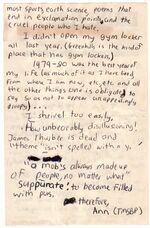 most sports, earth science, poems that
end in exclamation points, and the
cruel people who I hate.
I didn't open my gym locker
all last year. (Greenhill is the kinda
place that has gym lockers)
1979-80 was the best year of
my life (as much of it as I have lived
from when I am now, etc, etc, and all
the other things one is obligated to
say so as not to appear an appealingly
dumpy) ...
I shrivel too easily,
How unbearably disillusioning!
James Thurber is dead and
"theme" isn't spelled with a y.
"a mob's always made up
of people, no matter what"
suppurate! to become filled
with pus.
therefore,
Ann (TMSBP)